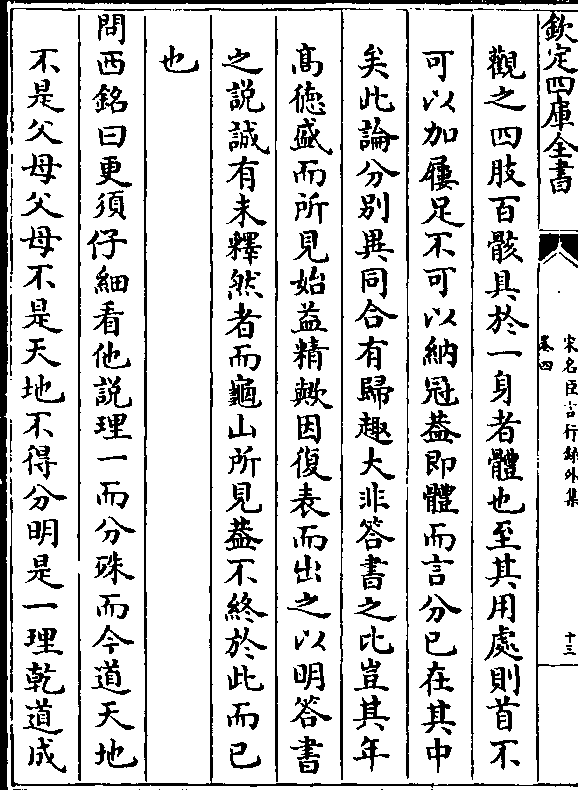 欽定四庫全書
宋名臣言行録外集
卷四
十三
觀之四肢百骸具於一身者體也至其用處則首不
可以加屨足不可以納冠葢即體而言分已在其中
矣此論分别異同合有歸趣大非答書之比豈其年
髙德盛而所見始益精歟因復表而出之以明答書
之説誠有未釋然者而龜山所見葢不終於此而已
也
問西銘曰更須仔細看他説理一而分殊而今道天地
不是父母父母不是天地不得分明是一理乾道成